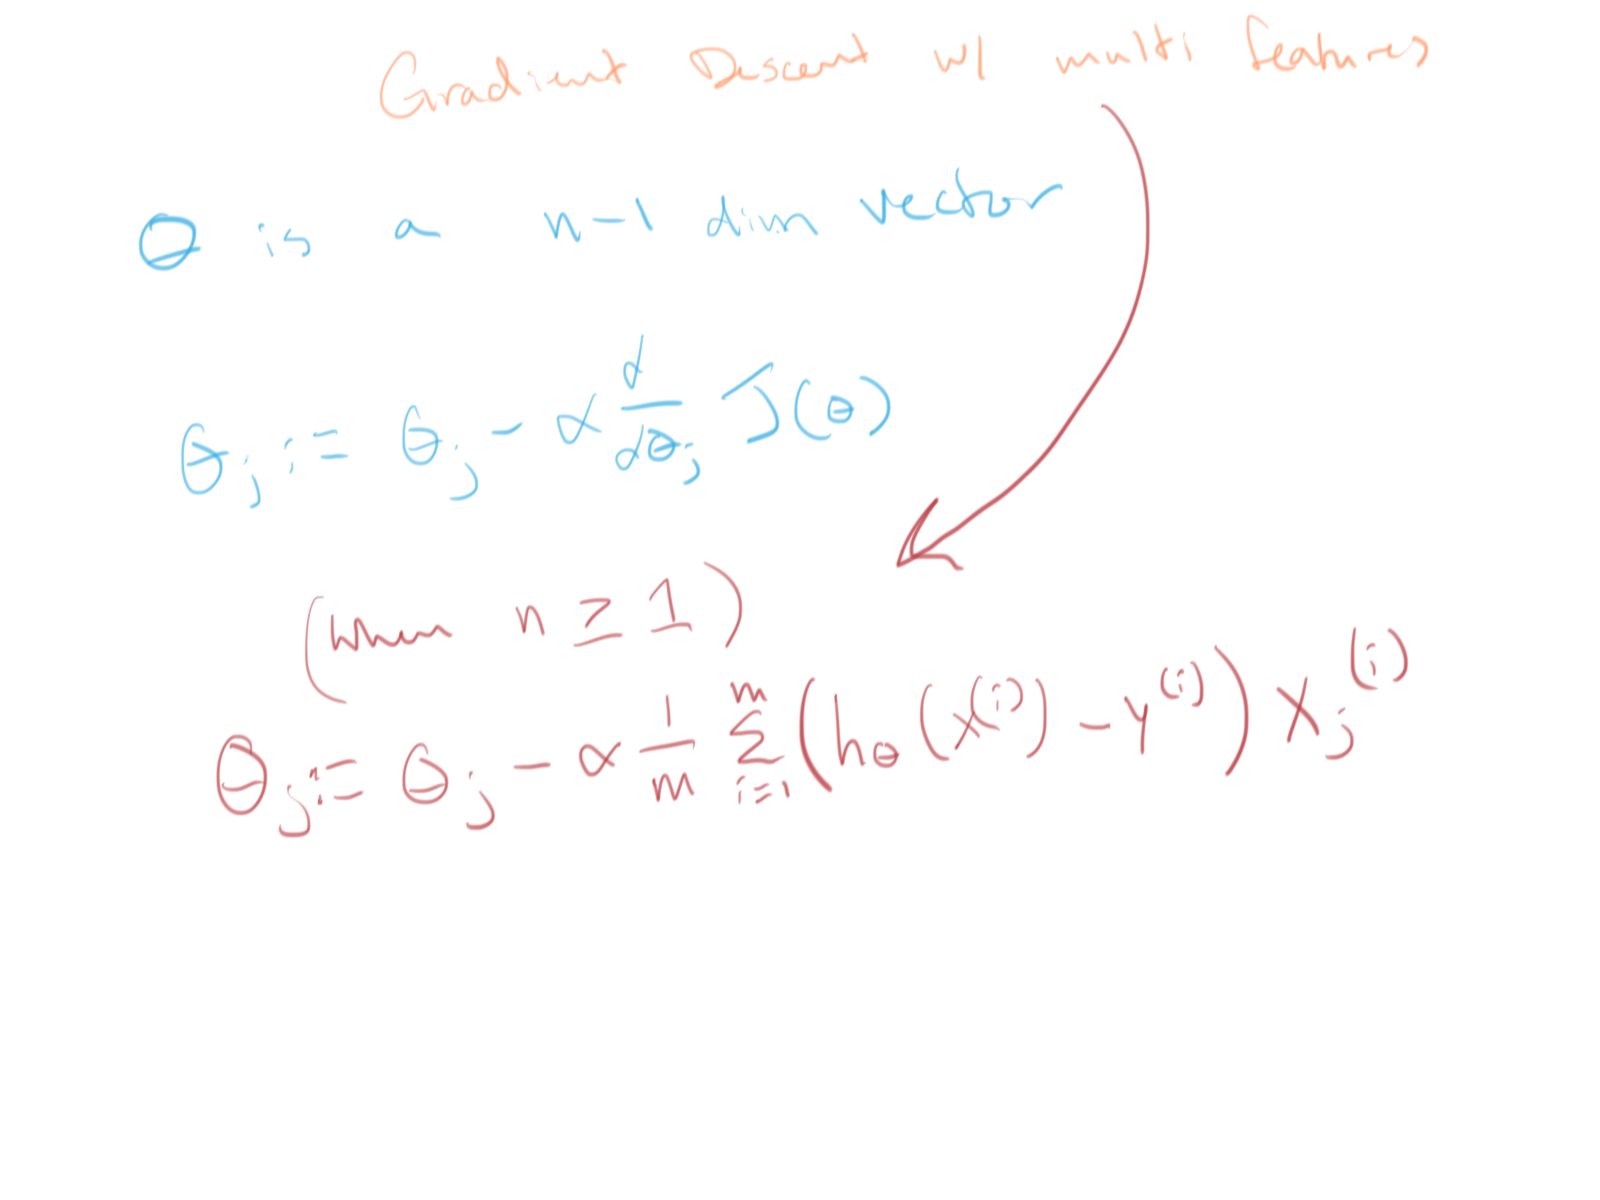 Gradient Descent w/ multi features
θ is a n-1 dim vector
θj := θj - α d/dθj J(θ)
(when n ≥ 1)
θj := θj - α 1/m Σ_{i=1}^{m} (hθ(x^(i)) - y^(i)) xj^(i)